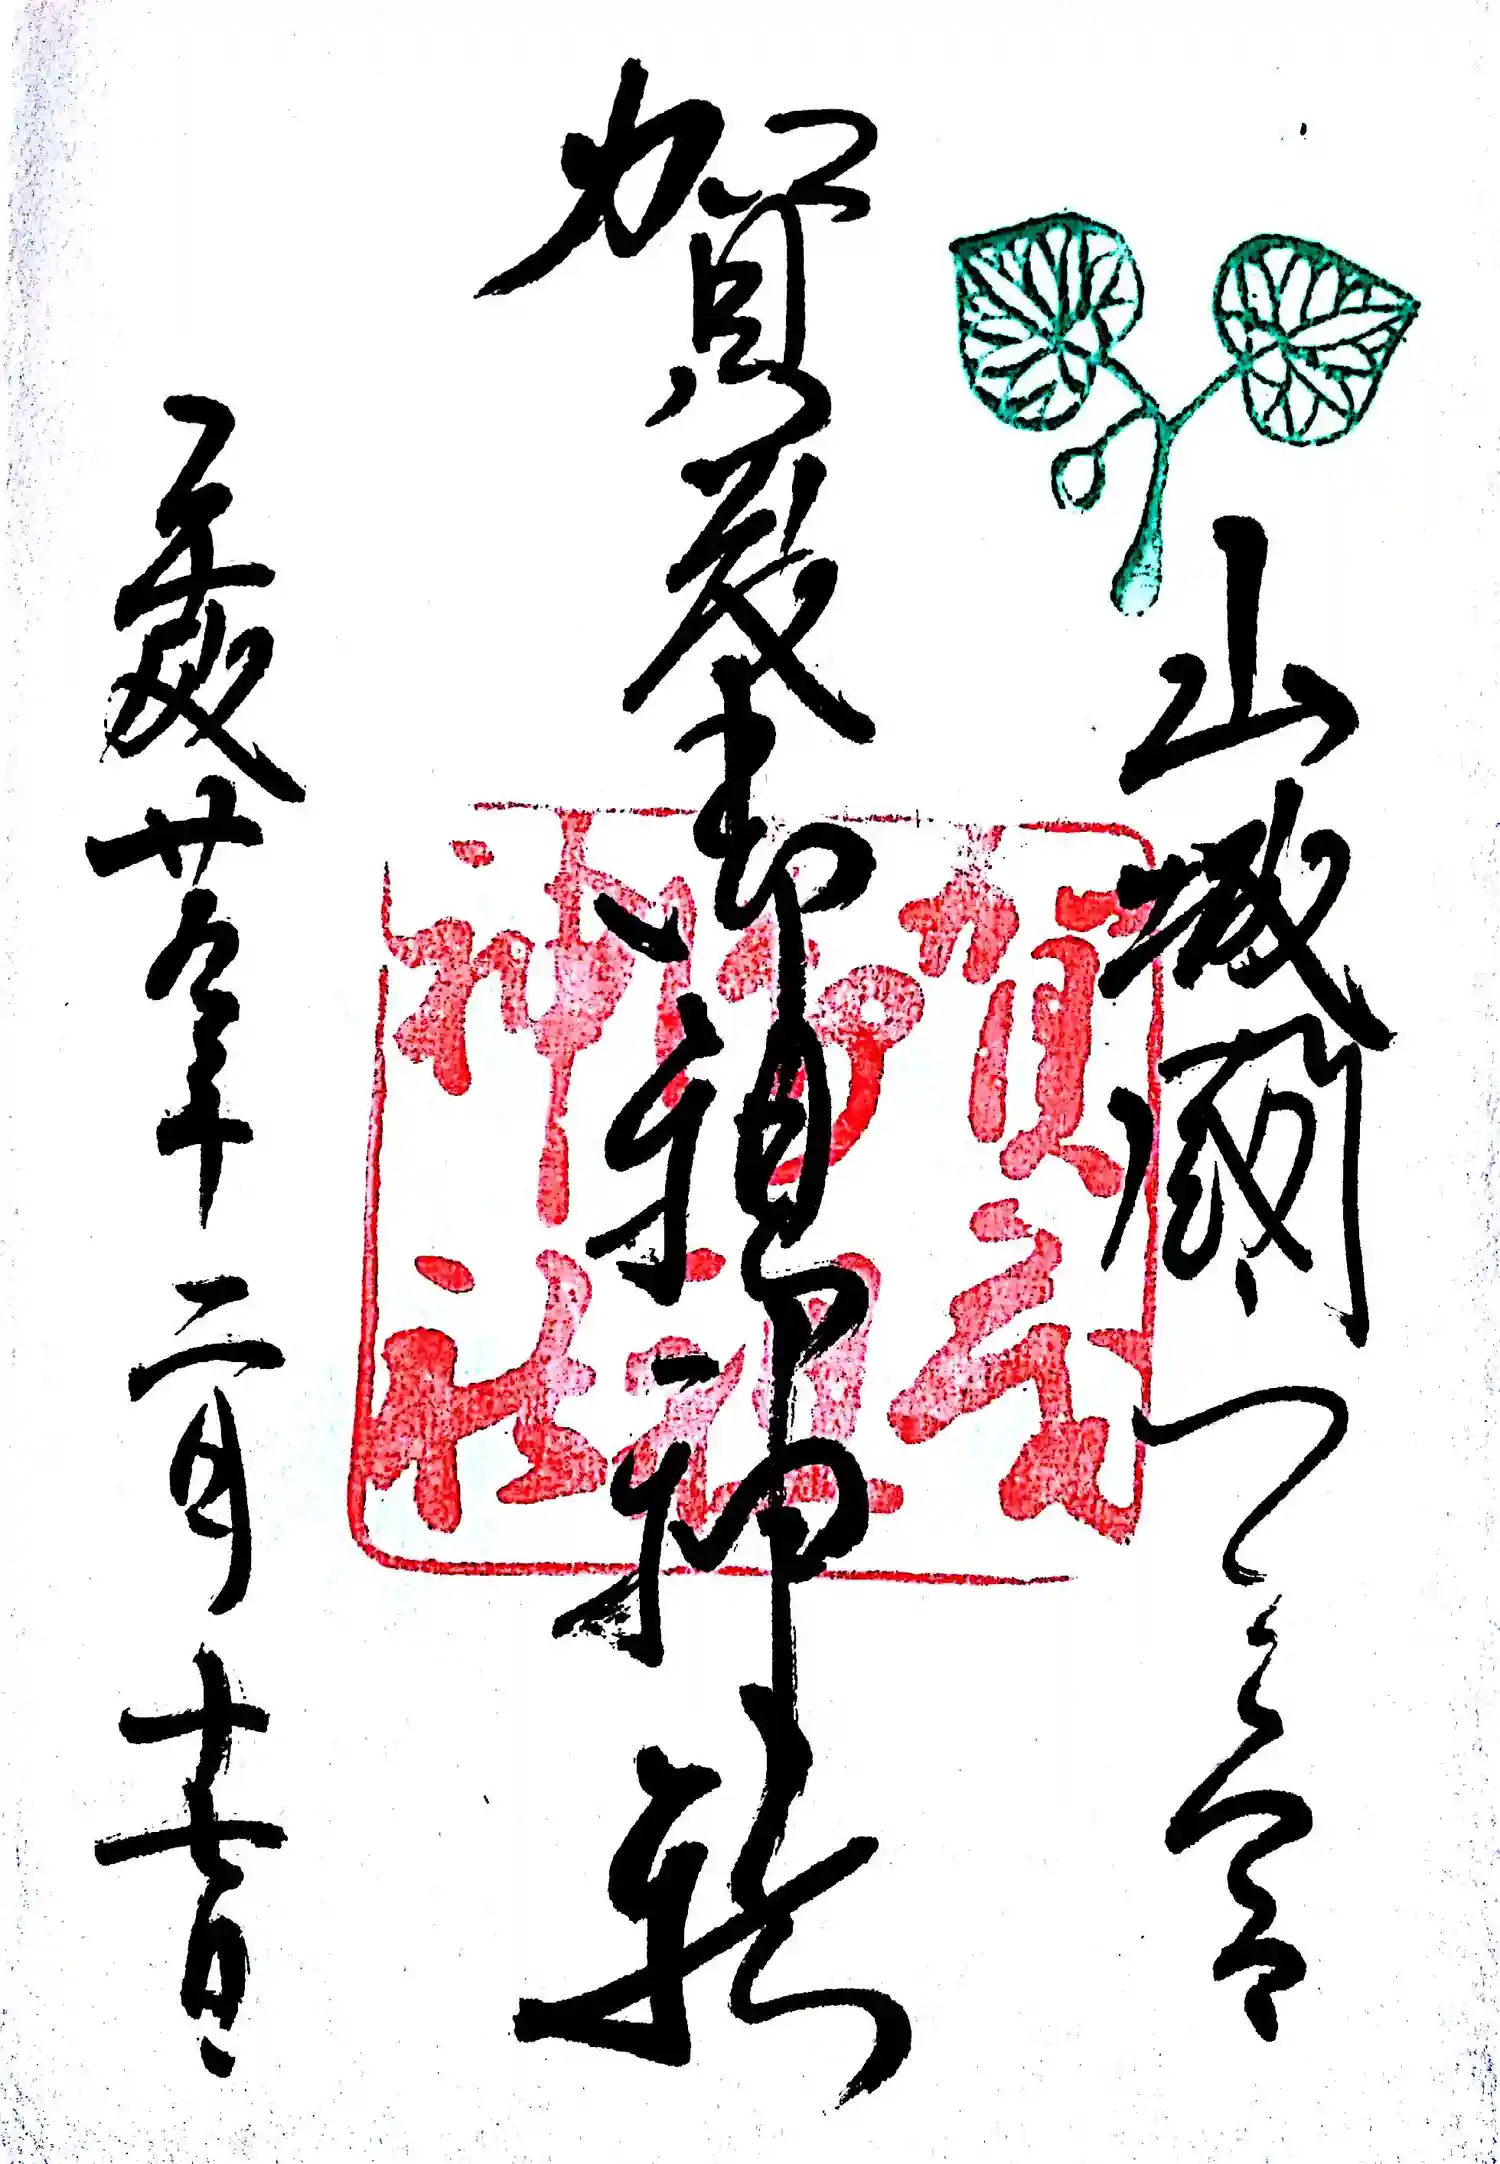 山城國一之宮
賀茂御祖神社
平成廿九年二月十七日
賀茂
御祖
神社